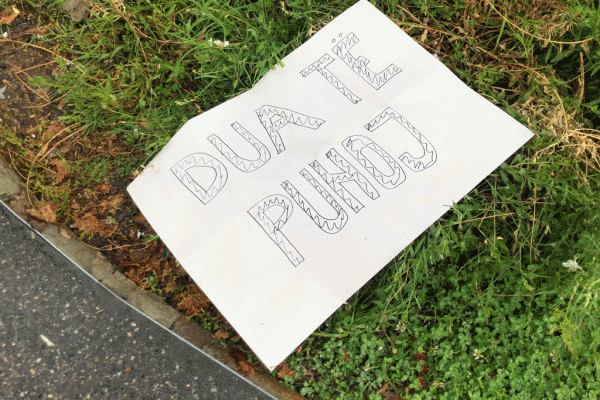 DUA TË
PUNOJ